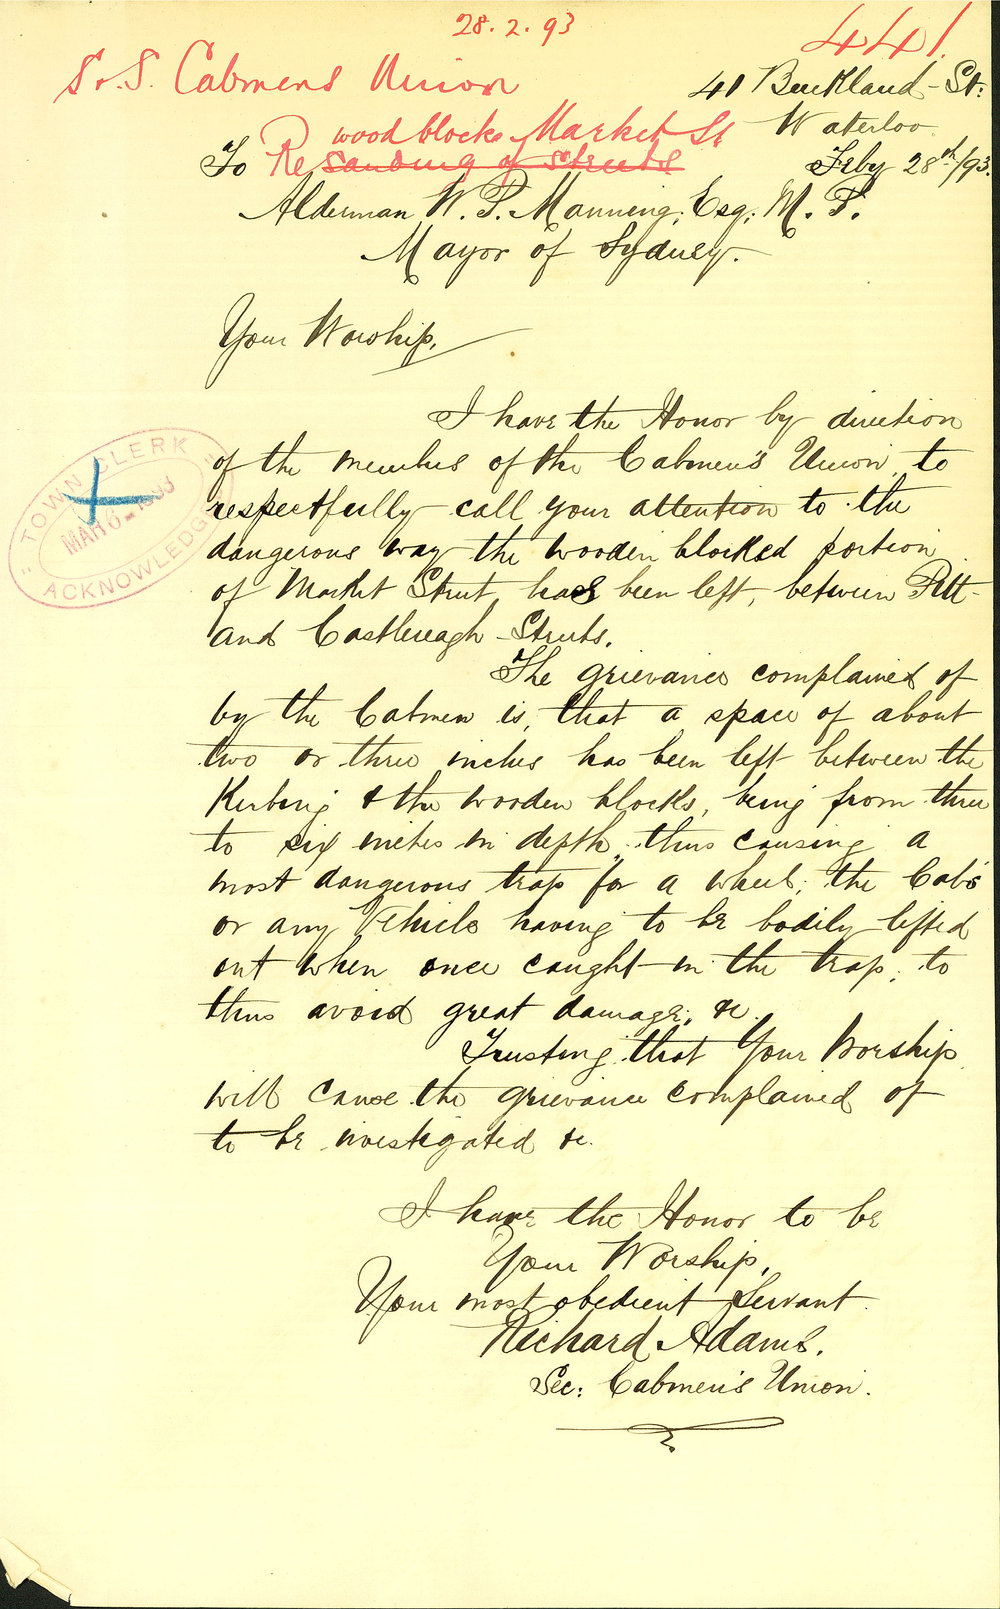 28.2.93
441
S.S. Cabmens Union
41 Buckland-St:
Waterloo
Feby 28th/93.
Re wood blocks Market St
sanding of streets
To
Alderman W. P. Manning, Esq; M. P.
Mayor of Sydney.
Your Worship,
I have the Honor by direction
of the members of the Cabmen's Union to
respectfully call your attention to the
dangerous way the wooden blocked portion
of Market Street, has been left, between Pitt-
and Castlereagh Streets.
The grievance complained of
by the Cabmen is, that a space of about
two or three inches has been left between the
Kerbing & the wooden blocks, being from three
to six inches in depth, thus causing a
most dangerous trap for a wheel; the Cabs
or any Vehicle having to be bodily lifted
out when once caught in the trap, to
thus avoid great damage, &c.
Trusting that Your Worship
will cause the grievance complained of
to be investigated &c.
I have the Honor to be
Your Worship,
Your most obedient Servant
Richard Adams.
Sec: Cabmen's Union.
TOWN CLERK
MAR 6 - 1893
ACKNOWLEDGED